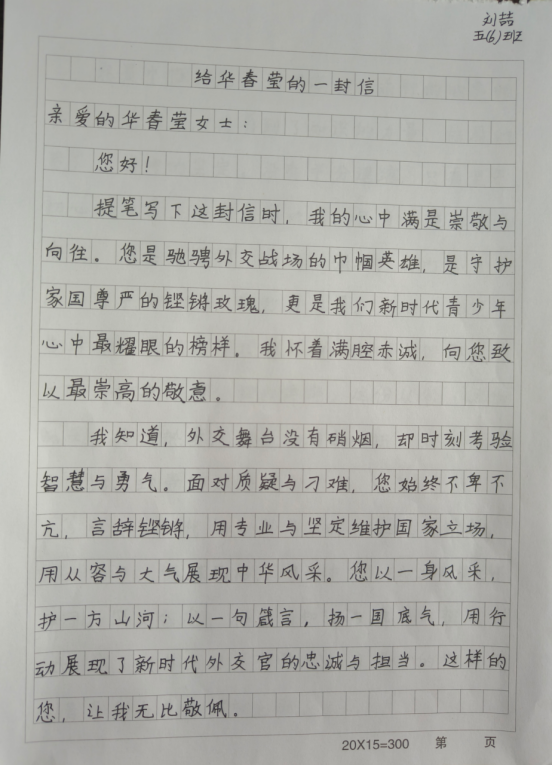 刘喆
五(6)班
给华春莹的一封信
亲爱的华春莹女士：
您好！
提笔写下这封信时，我的心中满是崇敬与
向往。您是驰骋外交战场的巾帼英雄，是守护
家国尊严的铿锵玫瑰，更是我们新时代青少年
心中最耀眼的榜样。我怀着满腔赤诚，向您致
以最崇高的敬意。
我知道，外交舞台没有硝烟，却时刻考验
智慧与勇气。面对质疑与刁难，您始终不卑不
亢，言辞铿锵，用专业与坚定维护国家立场，
用从容与大气展现中华风采。您以一身风采，
护一方山河；以一句箴言，扬一国底气，用行
动展现了新时代外交官的忠诚与担当。这样的
您，让我无比敬佩。
20X15=300 第 页